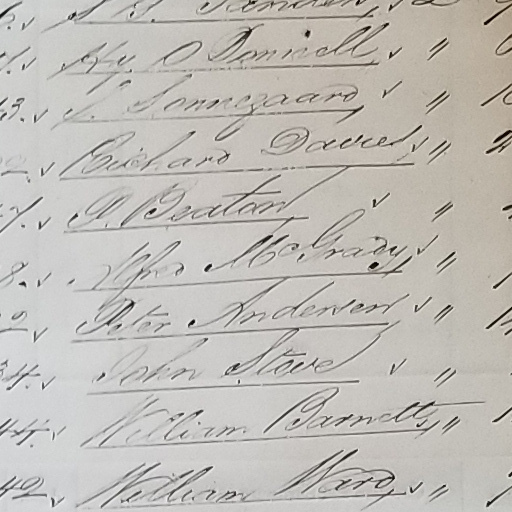 Hy. O'Donnell, ✓ "
3. ✓ J. Sonnegaard ✓ "
2. ✓ Richard Davies, ✓ "
7. ✓ P. Beaton ✓ "
8. ✓ Alfred McGrady, ✓ "
2 ✓ Peter Andersen ✓ "
34. ✓ John Stove ✓ "
44. ✓ William Barnetts, "
42. ✓ William Ward, ✓ "